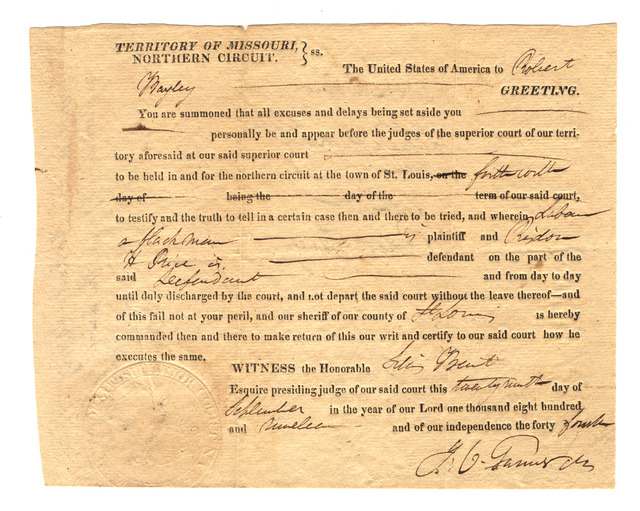 TERRITORY OF MISSOURI, } ss.
NORTHERN CIRCUIT.
The United States of America to Robert
Bayley GREETING.
You are summoned that all excuses and delays being set aside you
personally be and appear before the judges of the superior court of our terri-
tory aforesaid at our said superior court
to be held in and for the northern circuit at the town of St. Louis, on the forthwith
day of being the day of the term of our said court,
to testify and the truth to tell in a certain case then and there to be tried, and wherein
a black man is plaintiff and
H Price is defendant on the part of the
said Defendant and from day to day
until duly discharged by the court, and not depart the said court without the leave thereof—and
of this fail not at your peril, and our sheriff of our county of St Louis is hereby
commanded then and there to make return of this our writ and certify to our said court how he
executes the same.
WITNESS the Honorable Silas Bent
Esquire presiding judge of our said court this twenty ninth day of
September in the year of our Lord one thousand eight hundred
and nineteen and of our independence the forty fourth